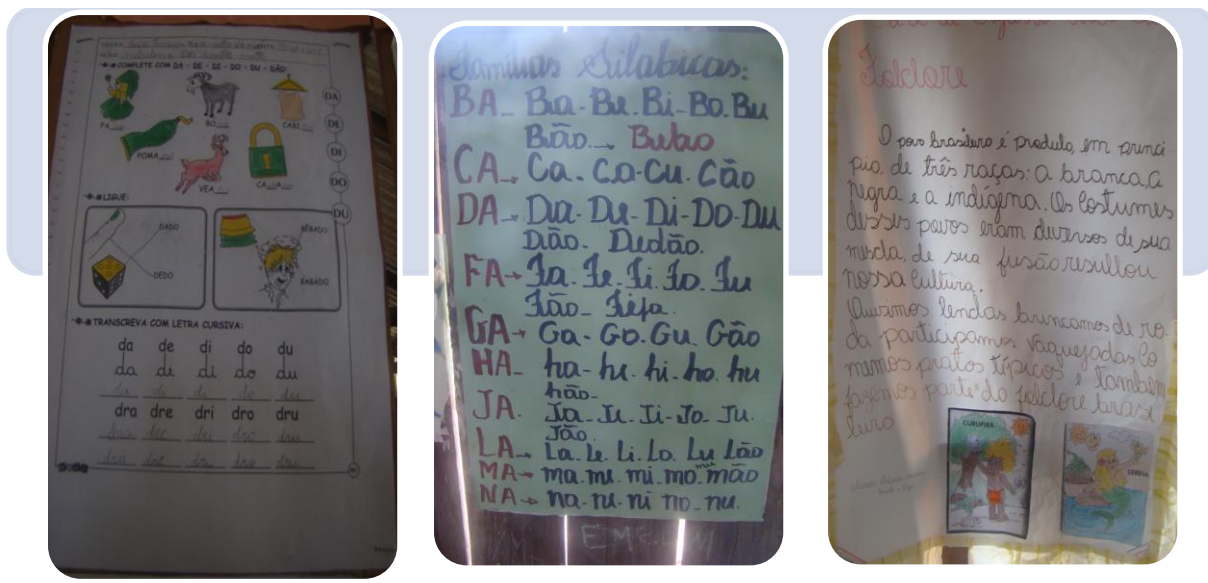 COMPLETE COM DA - DE - DI - DO - DU - DÃO:
FA
BO
CABI
POMA
VEA
CA A
DA
DE
DI
DO
DU
LIGUE:
DADO
DEDO
BÊBADO
BABADO
TRANSCREVA COM LETRA CURSIVA:
da de di do du
da de di do du
da de di do du
dra dre dri dro dru
dra dre dri dro dru
dra dre dri dro dru
Famílias Silabicas:
BA - Ba - Be - Bi - Bo. Bu
Bão. → Bebo
CA → Ca - Co - Cu - Cão
DA → Da - De - Di - Do - Du
Dão - Dedão.
FA → Fa. Fe. Fi. Fo. Fu
Fão -
GA → Ga - Go. Gu. Gão
HA - ha - he - hi - ho. hu
hão -
JA. Ja - Je - Ji - Jo - Ju.
Jão.
LA → La. Le. Li. Lo. Lu Lão
MA → ma. me. mi. mo. mu mão
NA → na - ne - ni no - nu.
Folclore
O povo brasileiro é produto, em princi
pio, de três raças: a branca, a
negra e a indígena. Os costumes
desses povos eram diversos de sua
mescla, de sua fusão resultou
nossa cultura.
Ouvimos lendas brincamos de ro-
da participamos vaquejadas co
memos pratos típicos e também
fazemos parte do folclore brasi
leiro
CURUPIRA
SEREIA